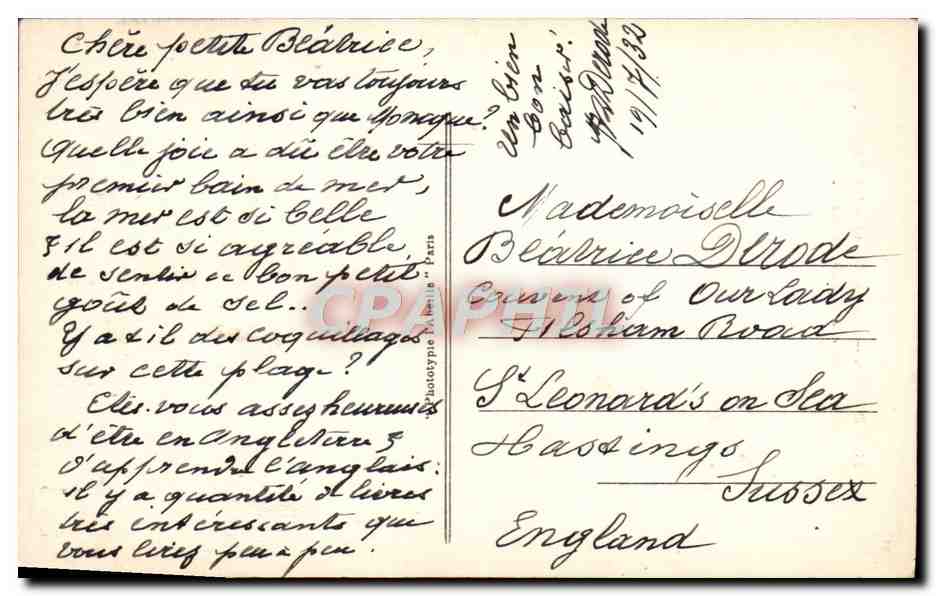 Chère petite Béatrice,
J'espère que tu vas toujours
très bien ainsi que Monique?
Quelle joie a dû être votre
premier bain de mer,
la mer est si belle
& il est si agréable
de sentir ce bon petit
goût de sel..
Y a t il des coquillages
sur cette plage?
Etes-vous assez heureuses
d'être en Angleterre &
d'apprendre l'anglais:
il y a quantité de livres
très intéressants que
vous lirez peu à peu.
Un bien
bon
baiser!
19/7/32
"Phototypie Paris
Mademoiselle
Béatrice Derode
Convent of Our Lady
Filsham Road
St Leonard's on Sea
Hastings
Sussex
England
CPAPHIL